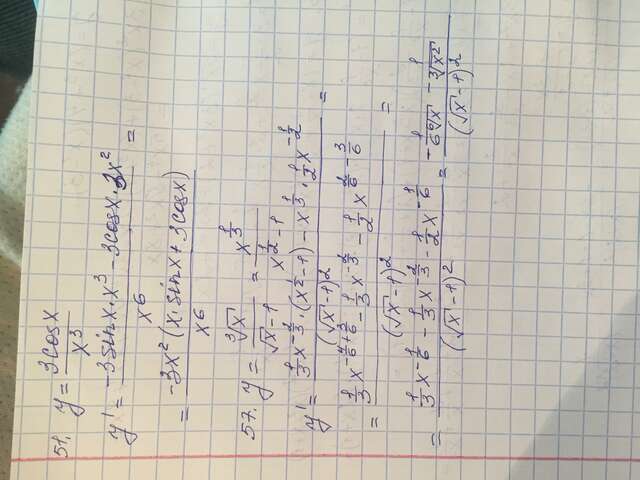 51. y = 3cosx / x³
y' = (-3sinx·x³ - 3cosx·3x²) / x⁶ =
= -3x²(x·sinx + 3cosx) / x⁶
57. y = ∛x / (√x - 1) = x^(1/3) / (x^(1/2) - 1)
y' = (1/3 x^(-2/3)·(x^(1/2) - 1) - x^(1/3)·1/2 x^(-1/2)) / (√x - 1)² =
= (1/3 x^(-4/6+3/6) - 1/3 x^(-2/3) - 1/2 x^(2/6-3/6)) / (√x - 1)² =
= (1/3 x^(-1/6) - 1/3 x^(-2/3) - 1/2 x^(-1/6)) / (√x - 1)² = (-1/(6 ⁶√x) - 1/(3 ∛x²)) / (√x - 1)²